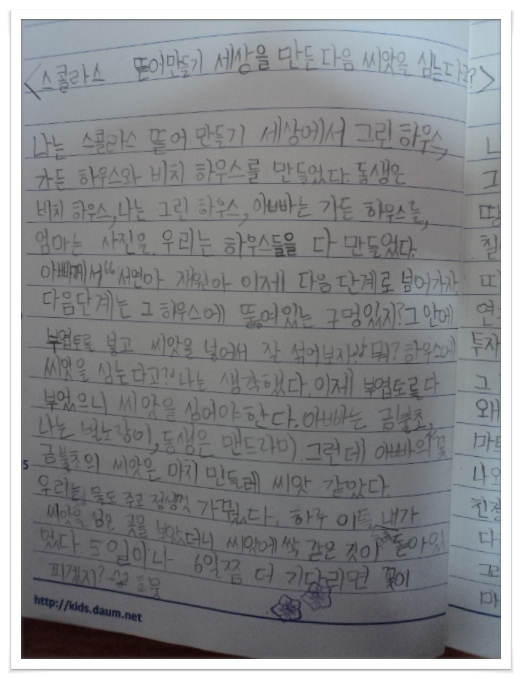 <스콜라스 뜯어만들기 세상을 만든다음 씨앗을 심는다고?>
나는 스콜라스 뜰어 만들기 세상에서 그린 하우스,
가든 하우스와 비치 하우스를 만들었다. 동생은
비치 하우스, 나는 그린 하우스, 아빠는 가든 하우스를,
엄마는 사진을. 우리는 하우스들을 다 만들었다.
아빠께서 "서연아 재원아 이제 다음 단계로 넘어가자
다음단계는 그 하우스에 뚫어있는 구멍있지? 그 안에
부엽토로 넣고 씨앗을 넣어서 잘 섞어보자" 뭐? 하우스에
씨앗을 심는다고? 나는 생각했다. 이제 부엽토를 다
부었으니 씨앗을 심어야 한다. 아빠는 금불초,
나는 벌노랑이, 동생은 맨드라미 그런데 아빠의 꽃
금불초의 씨앗은 마치 민들레 씨앗 같았다.
우리는 물도 주고 정성껏 가꿨다. 하루 이틀, 내가
씨앗을 심은 곳을 보았더니 씨앗에 싹 같은 것이 돋아있
었다 5일이나 6일쯤 더 기다리면 꽃이
피겠지?
http://kids.daum.net